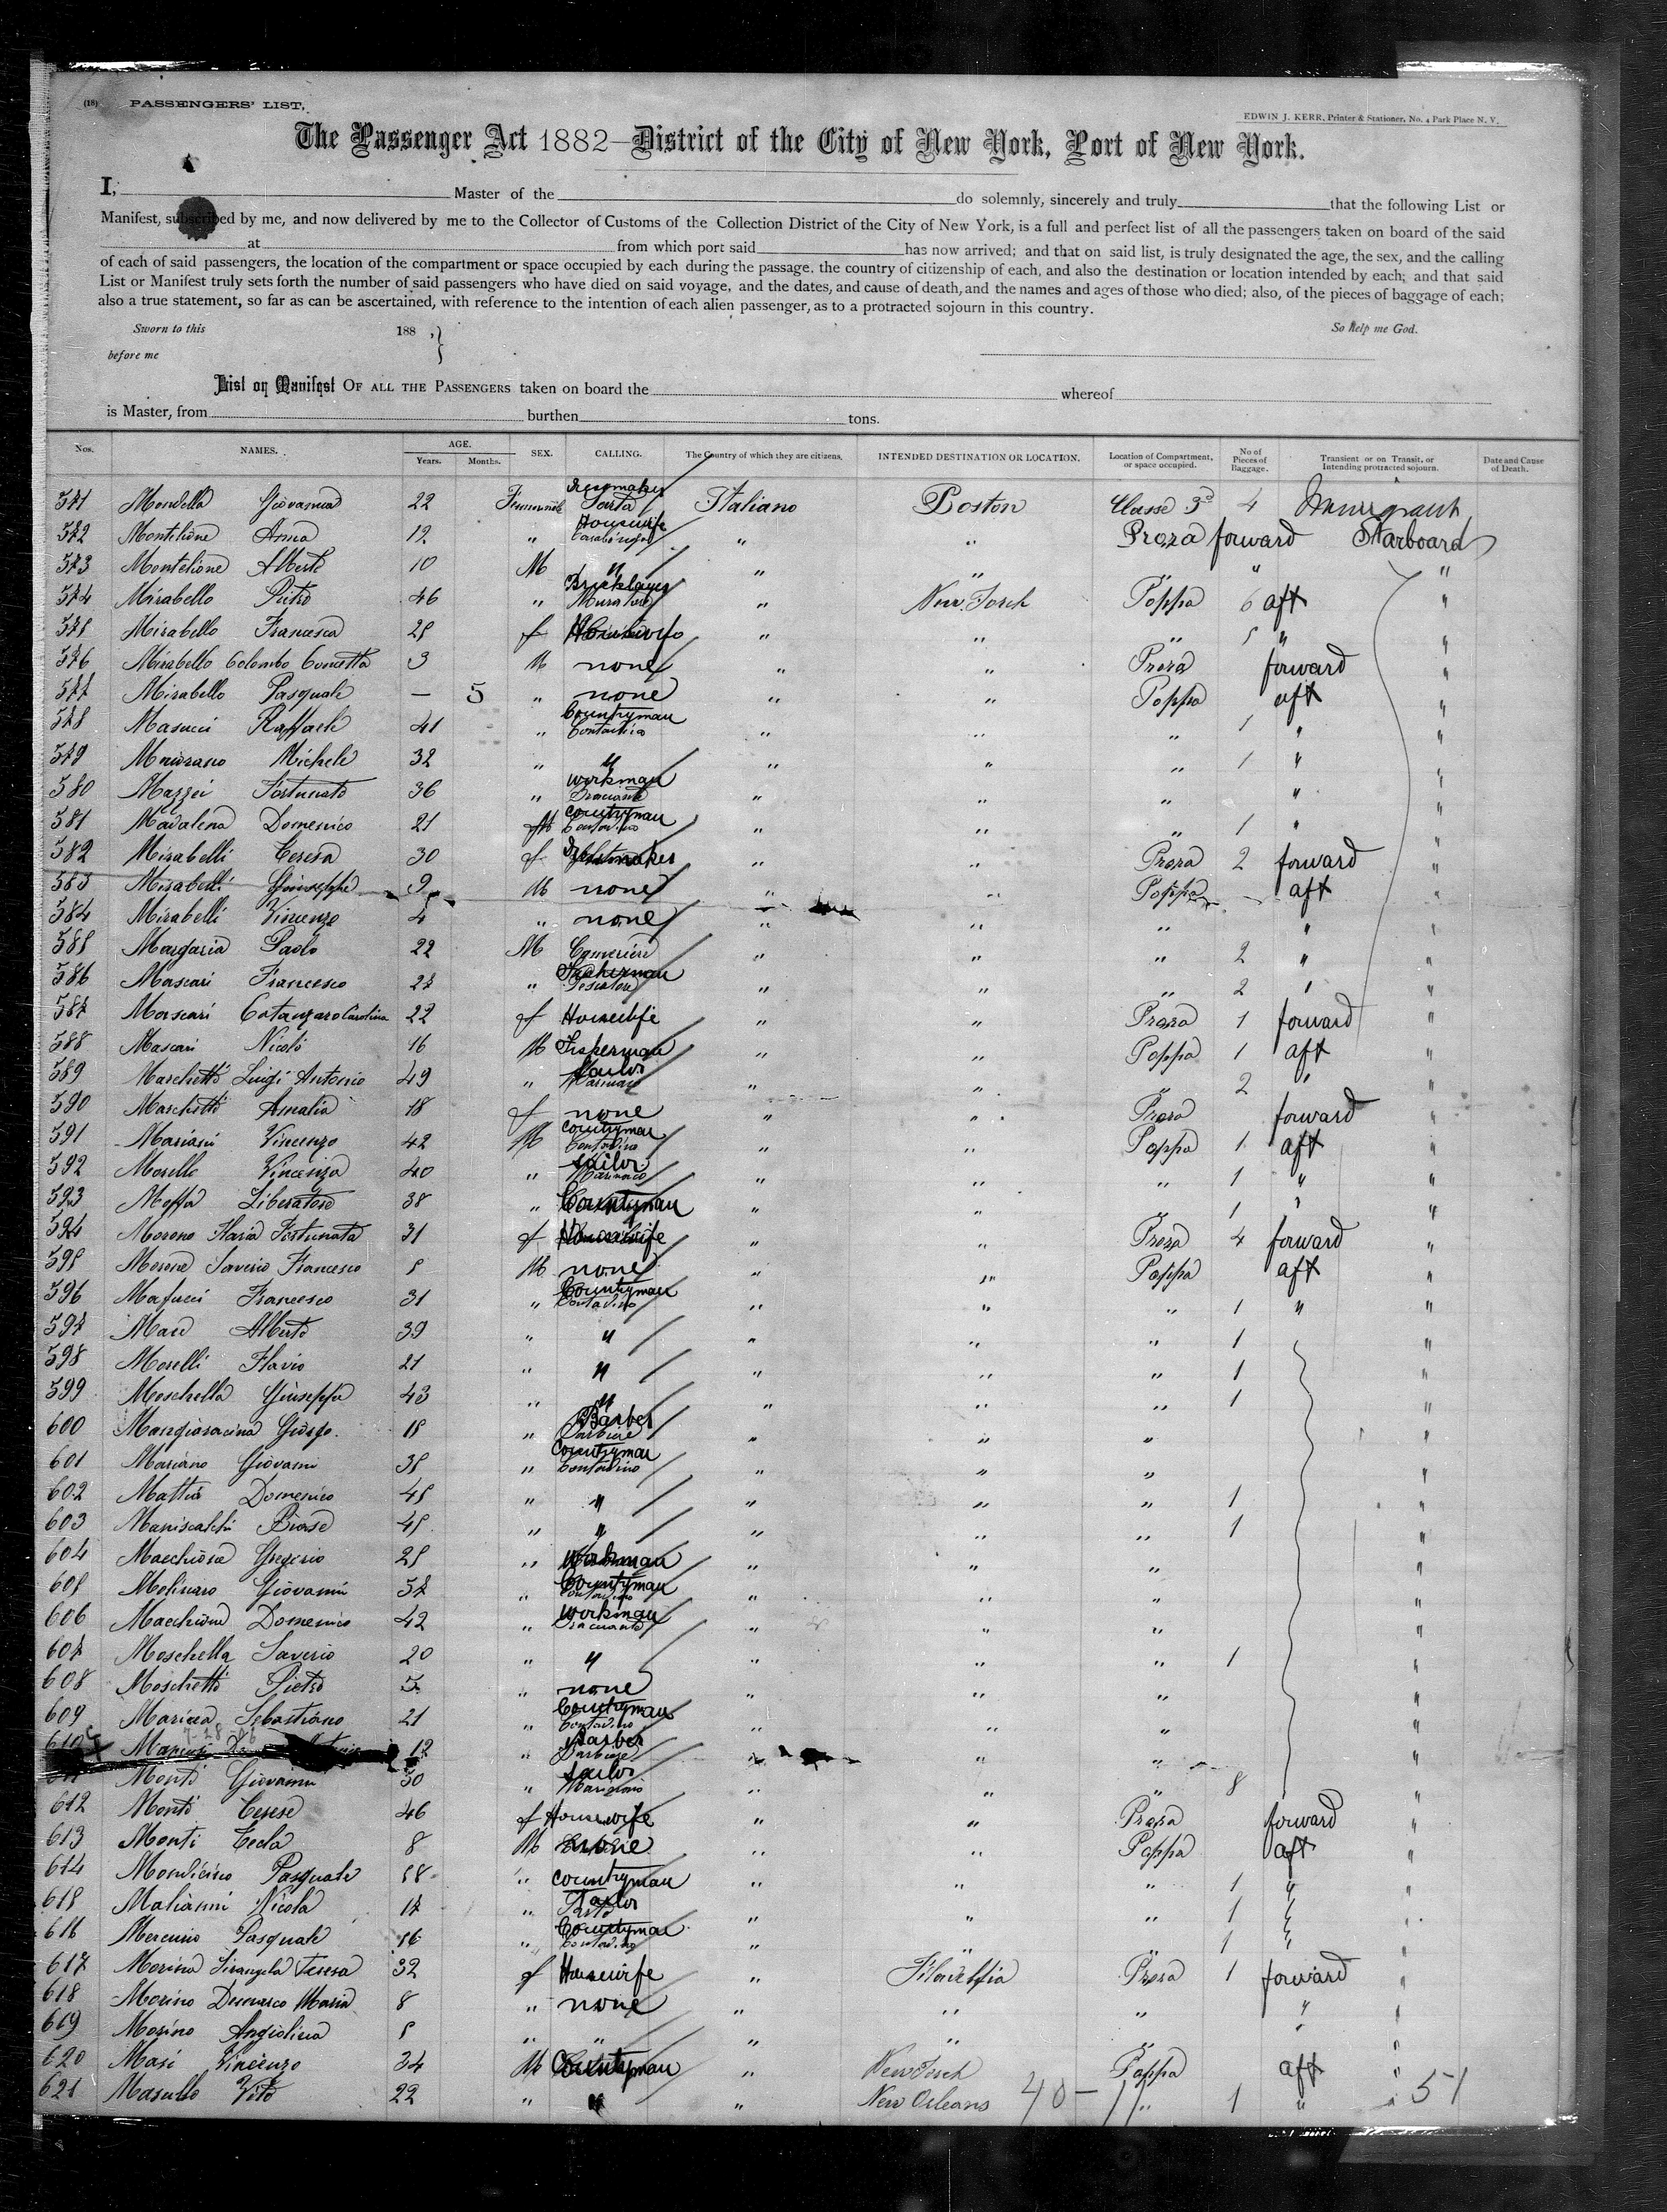 (18) PASSENGERS' LIST.
EDWIN J. KERR, Printer & Stationer, No. 4 Park Place N. Y.
The Passenger Act 1882—District of the City of New York, Port of New York.
I, Master of the do solemnly, sincerely and truly that the following List or
Manifest, subscribed by me, and now delivered by me to the Collector of Customs of the Collection District of the City of New York, is a full and perfect list of all the passengers taken on board of the said
at from which port said has now arrived; and that on said list, is truly designated the age, the sex, and the calling
of each of said passengers, the location of the compartment or space occupied by each during the passage, the country of citizenship of each, and also the destination or location intended by each; and that said
List or Manifest truly sets forth the number of said passengers who have died on said voyage, and the dates, and cause of death, and the names and ages of those who died; also, of the pieces of baggage of each;
also a true statement, so far as can be ascertained, with reference to the intention of each alien passenger, as to a protracted sojourn in this country.
Sworn to this 188 , } So help me God.
before me
List or Manifest OF ALL THE PASSENGERS taken on board the whereof
is Master, from burthen tons.
Nos. NAMES. AGE. Years. Months. SEX. CALLING. The Country of which they are citizens. INTENDED DESTINATION OR LOCATION. Location of Compartment, or space occupied. No of Pieces of Baggage. Transient or on Transit, or Intending protracted sojourn. Date and Cause of Death.
571 Mondella Giovanna 22 Dressmaker Sarta Italiano Boston Classe 3ª 4 Immigrant
572 Montelione Anna 12 " Housewife " " Prora forward Starboard
573 Montelione Alberto 10 M " " " " "
574 Mirabello Pietro 46 " Bricklayer Muratore " New Jorch Poppa 6 aft "
575 Mirabello Francesca 25 f Housewife " " " 5 " "
576 Mirabello Colombo Concetta 3 M none " " Prora forward "
577 Mirabello Pasquale — 5 " none " " Poppa aft "
578 Masucci Raffaele 41 " Countryman " " " 1 " "
579 Michele 32 " " " " " 1 " "
580 Mazzei Fortunato 36 " workman " " " " "
581 Madalena Domenico 21 M countryman Contadino " " " 1 " "
582 Mirabelli Teresa 30 f Dressmaker " " Prora 2 forward "
583 Mirabelli Giuseppe 9 M none " " Poppa aft "
584 Mirabelli Vincenzo 4 " none " " " " "
585 Margaria Paolo 22 M Cameriere " " " 2 " "
586 Mascari Francesco 27 " Fisherman Pescatore " " " 2 " "
587 Mascari Catanzaro Carolina 22 f Housewife " " Prora 1 forward "
588 Mascari Nicolò 16 M Fisherman " " Poppa 1 aft "
589 Marchetti Luigi Antonio 49 " Sailor Marinaro " " " 2 " "
590 Marchetti Amalia 18 f none " " Prora forward "
591 Mariani Vincenzo 42 M countryman Contadino " " Poppa 1 aft "
592 Morello Vincenzo 40 " sailor Marinaro " " " 1 " "
593 Moffa Liberatore 38 " Countryman " " " 1 " "
594 Moreno Maria Fortunata 31 f Housewife " " Prora 4 forward "
595 Morena Saverio Francesco 5 M none " " Poppa aft "
596 Mafucci Francesco 31 " Countryman Contadino " " " 1 " "
597 Alberto 39 " " " " " 1 "
598 Morelli Flavio 21 " " " " " 1 "
599 Moschella Giuseppe 43 " " " " " 1 "
600 Mangiaracina Giorgo. 15 " Barber Barbiere " " " "
601 Mariano Giovanni 35 " Countryman Contadino " " " "
602 Mattia Domenico 45 " " " " " 1 "
603 Maniscalchi Biase 45 " " " " " 1 "
604 Macchiona Gregorio 25 " Workman " " " "
605 Molinaro Giovanni 57 " Countryman Contadino " " " "
606 Macchione Domenico 42 " workman " " " "
607 Moschella Saverio 20 " " " " " 1 "
608 Moschetti Pietro 5 " none " " " "
609 Sebastiano 21 " Countryman Contadino " " " "
610 12 " Barber Barbiere " " " "
611 Monti Giovanni 50 " Sailor Marinaro " " " 8 "
612 Monti Terese 46 f Housewife " " Prora forward "
613 Monti Tecla 8 M none " " Poppa aft "
614 Pasquale 58 " countryman " " " 1 " "
615 Nicola 17 " Tailor " " " 1 " "
616 Mercurio Pasquale 16 " Countryman Contadino " " " 1 " "
617 Morino Teresa 32 f Housewife " Filadelfia Prora 1 forward "
618 Morino Demarco Maria 8 " none " " " " "
619 Morino Angiolina 5 " " " " " " "
620 Masi Vincenzo 34 M Countryman " New Jorch Poppa aft "
621 Masullo Vito 22 " " " New Orleans 40 – 11 " 1 " " 51